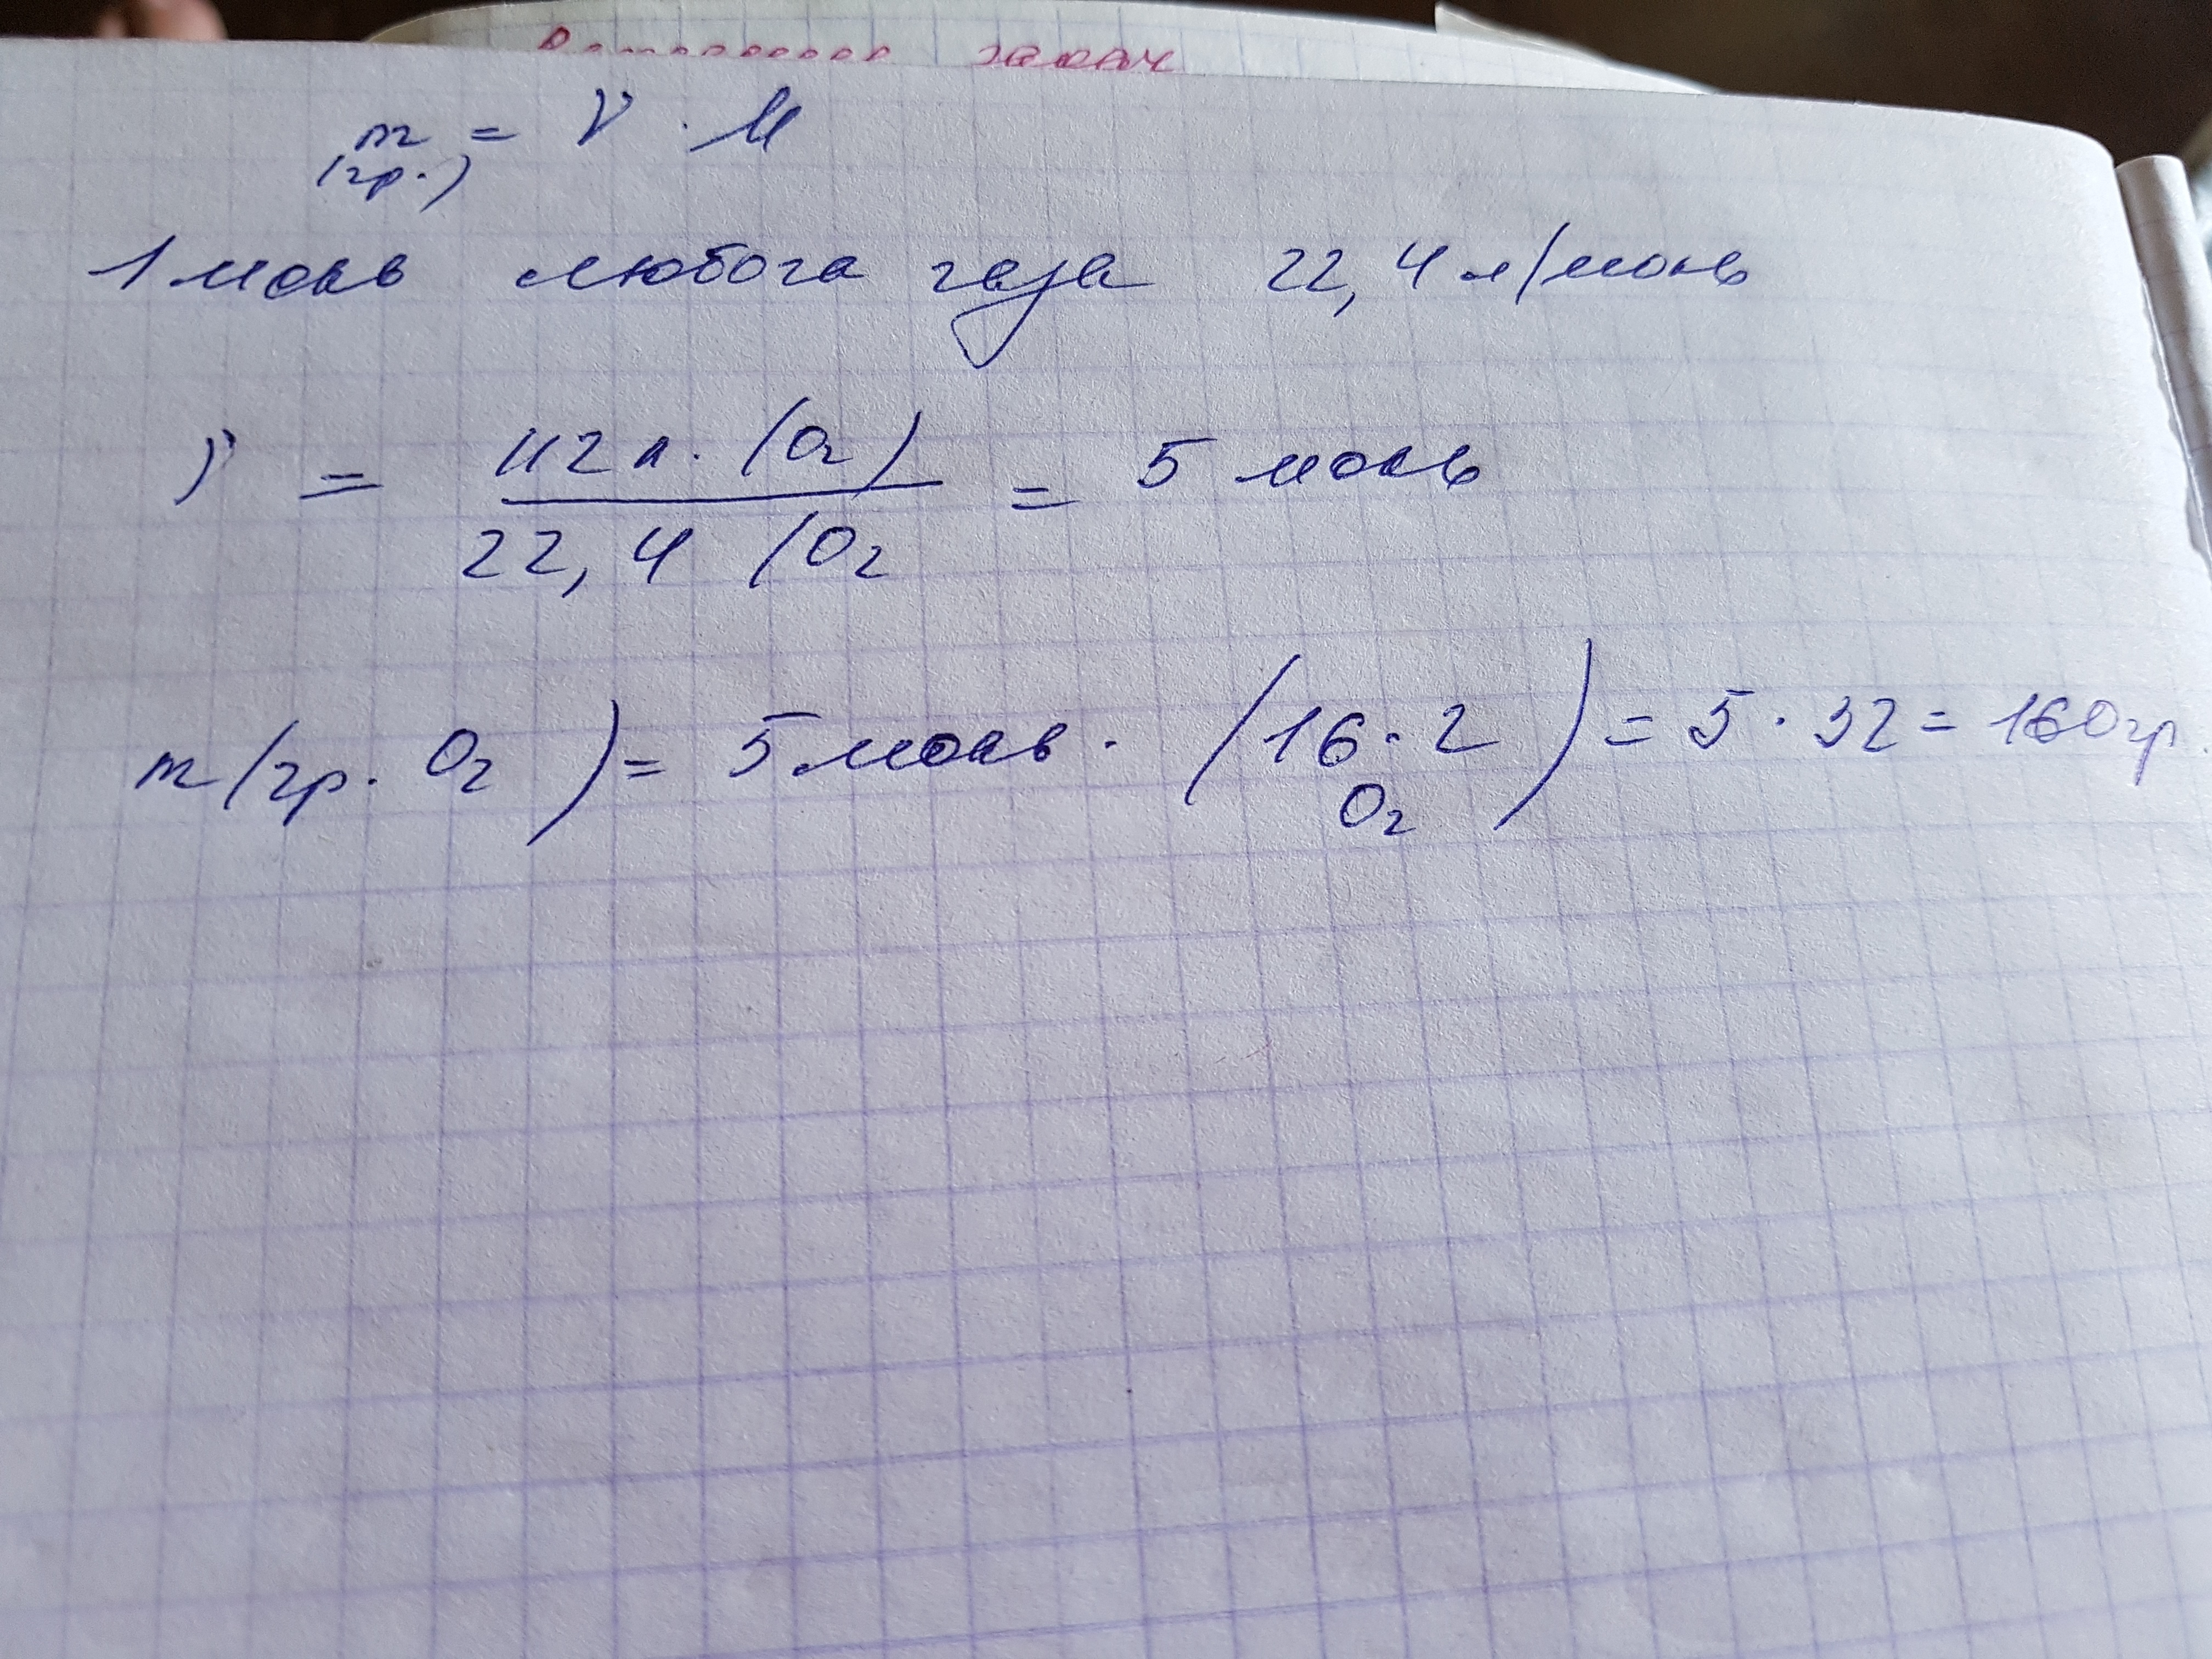 задач
m = ν · M
(гр.)
1 моль любога газа 22,4 л/моль
ν = 112 л. (O₂) / 22,4 (O₂ = 5 моль
m (гр. O₂) = 5 моль · (16 · 2) = 5 · 32 = 160 гр.
O₂